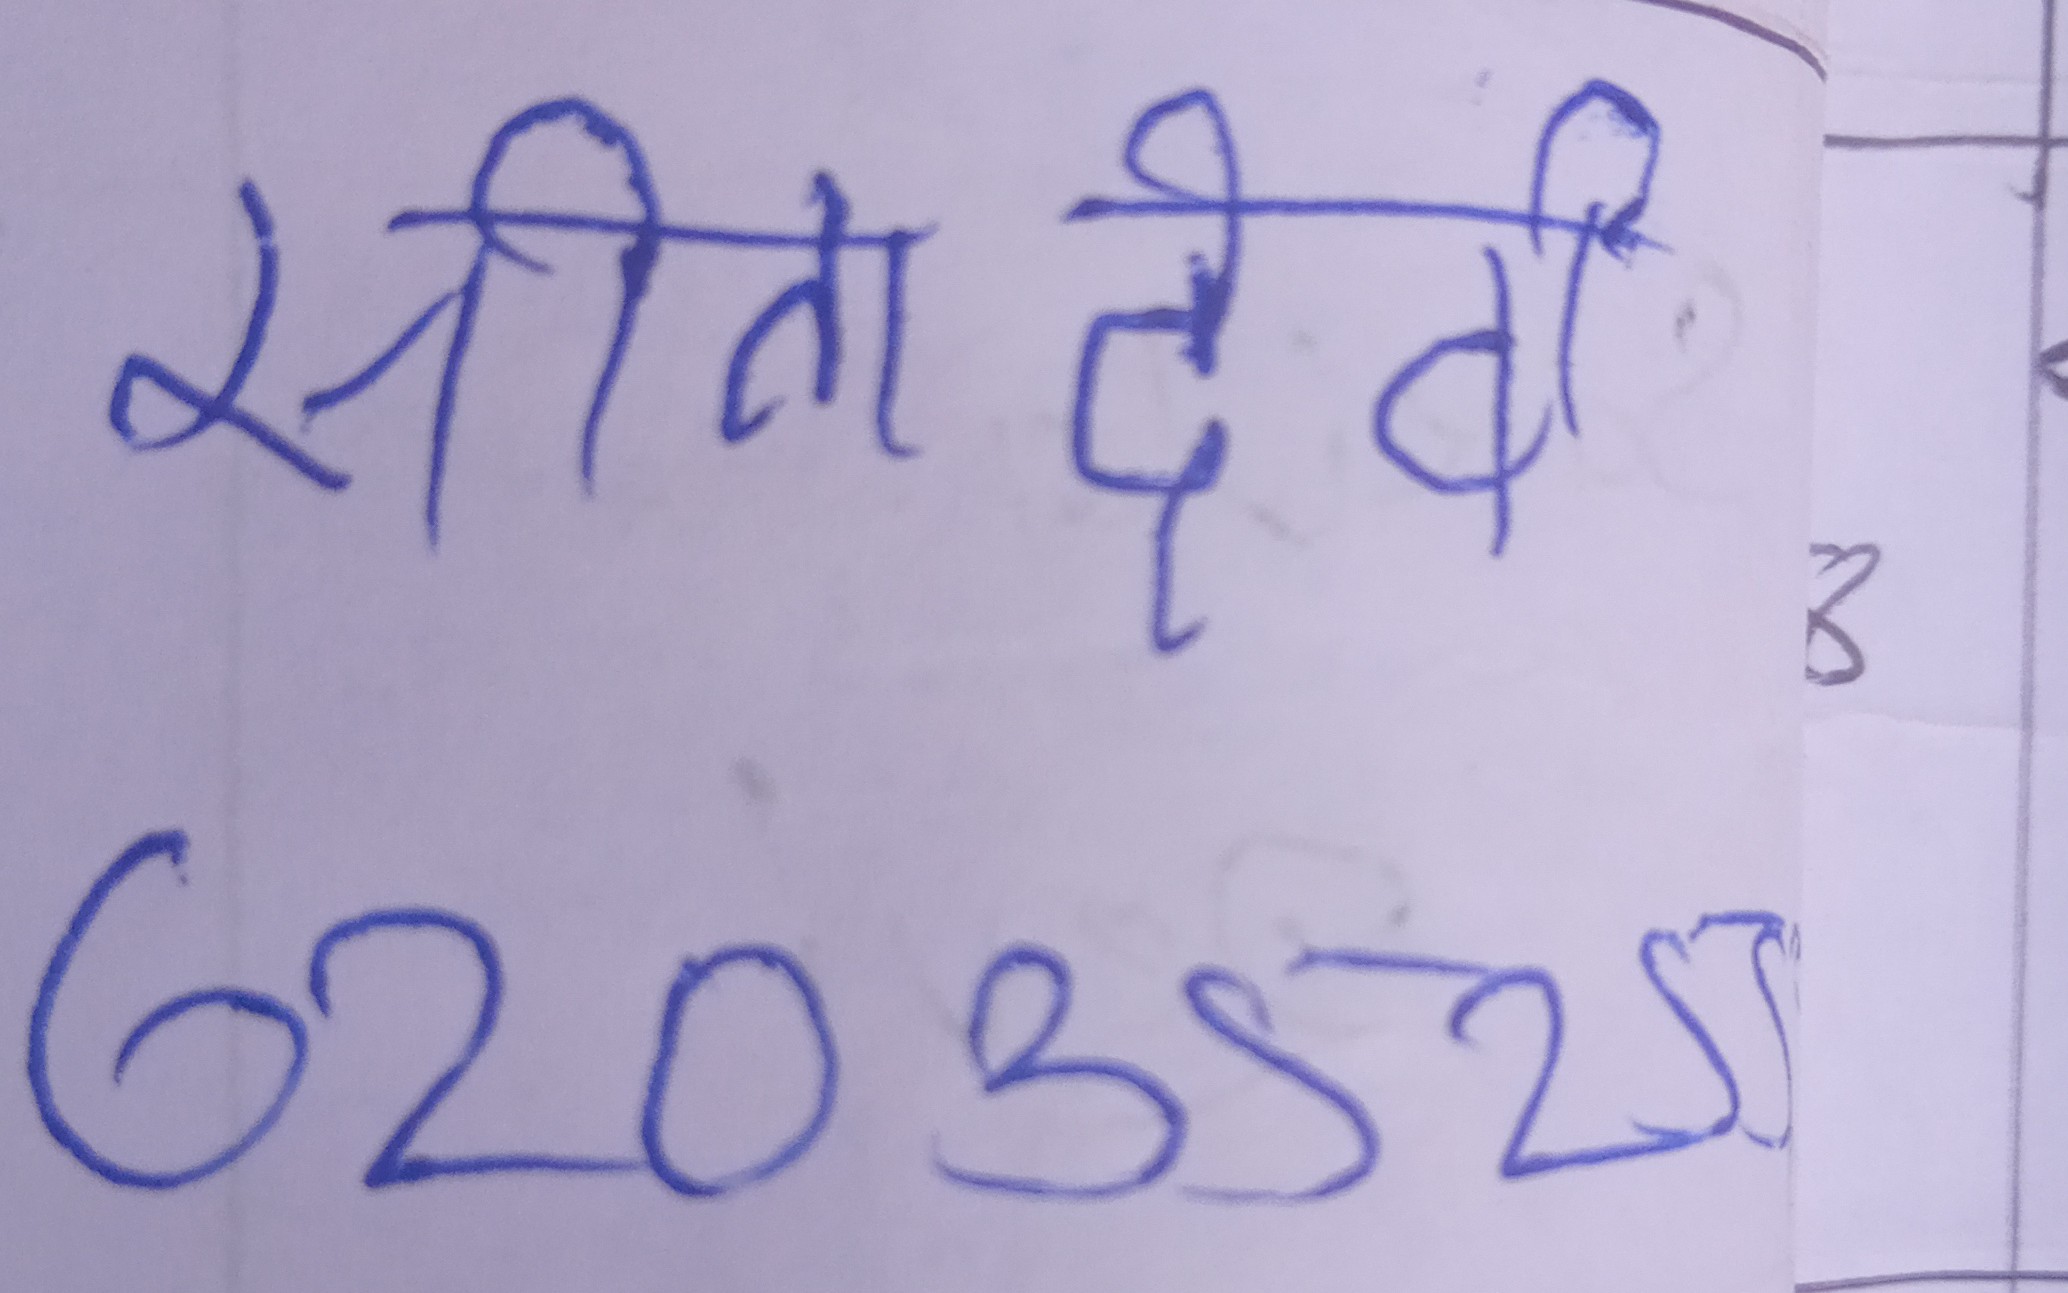 सीता देवी
6203525